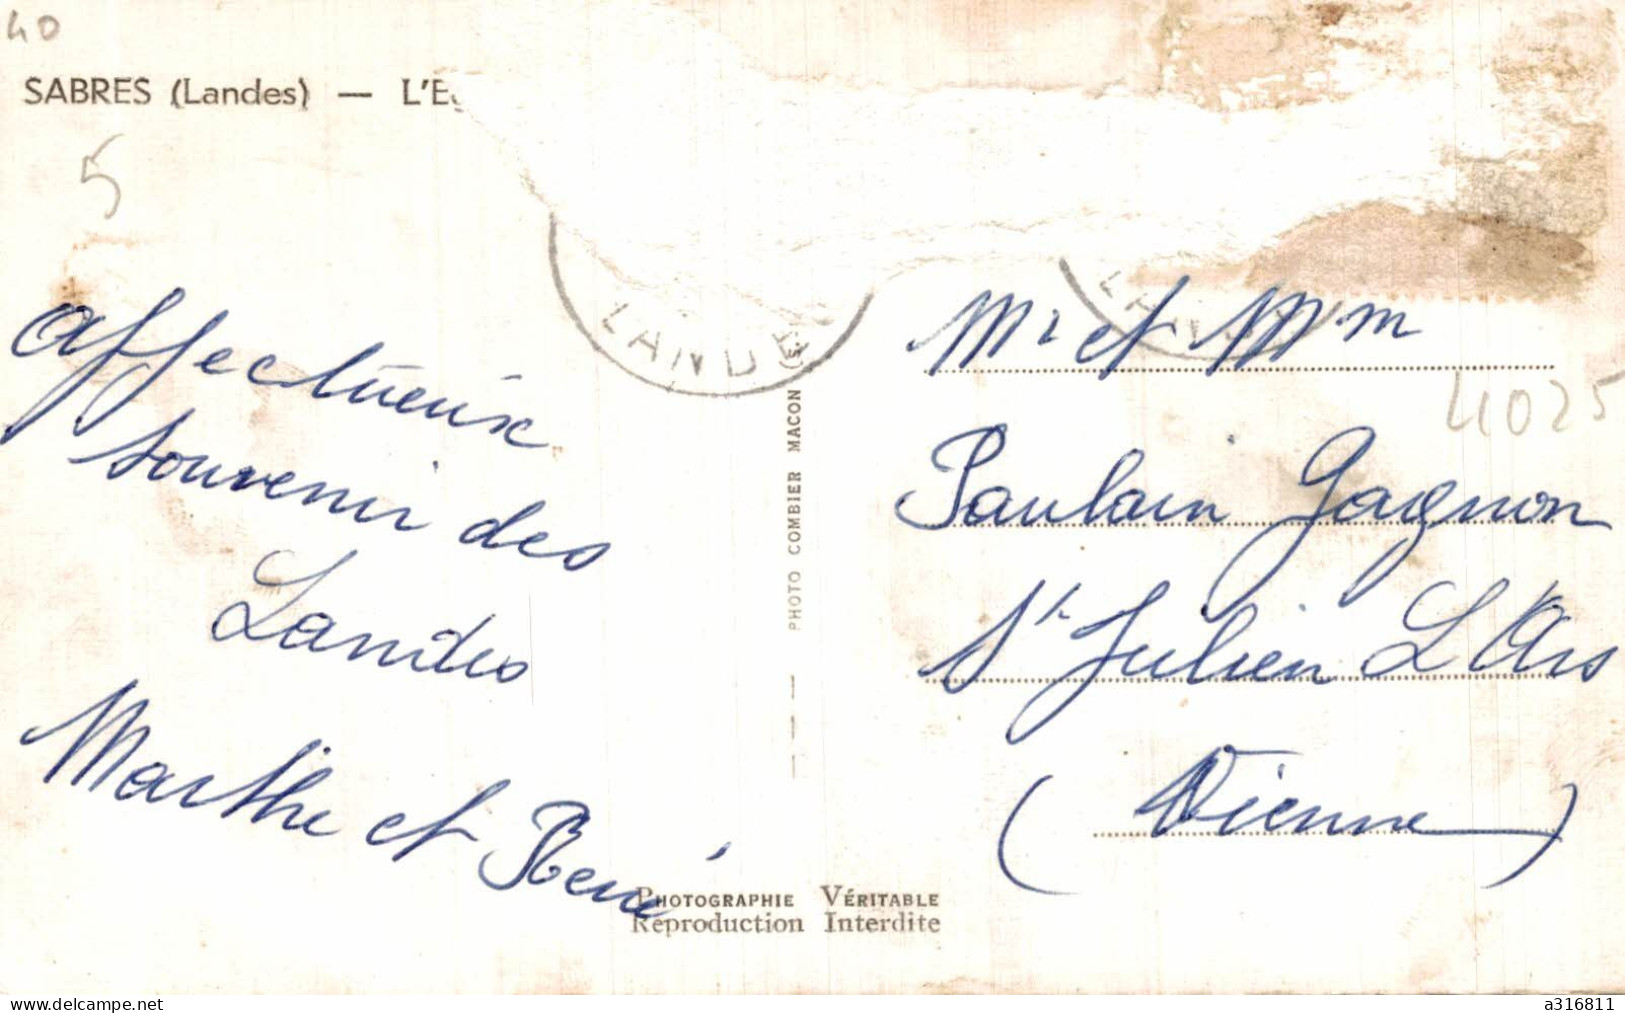 40
SABRES (Landes) — L'Eg
5
LANDES
LANDE
affectueux
souvenir des
Landes
Marthe et René
PHOTO COMBIER MACON
Mr et Mm
4025
Paulain Gagnon
St Julien L'Ars
(Vienne)
PHOTOGRAPHIE VÉRITABLE
Reproduction Interdite
www.delcampe.net
a316811